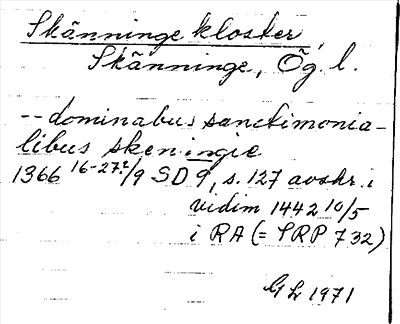 Skänninge kloster,
Skänninge, Ög. l.
-- dominabus sanctimonia-
libus skeningie
1366 16-27?/9 SD 9, s. 127 avskr. i
vidim 1442 10/5
i RA (= SRP 732)
G L 1971